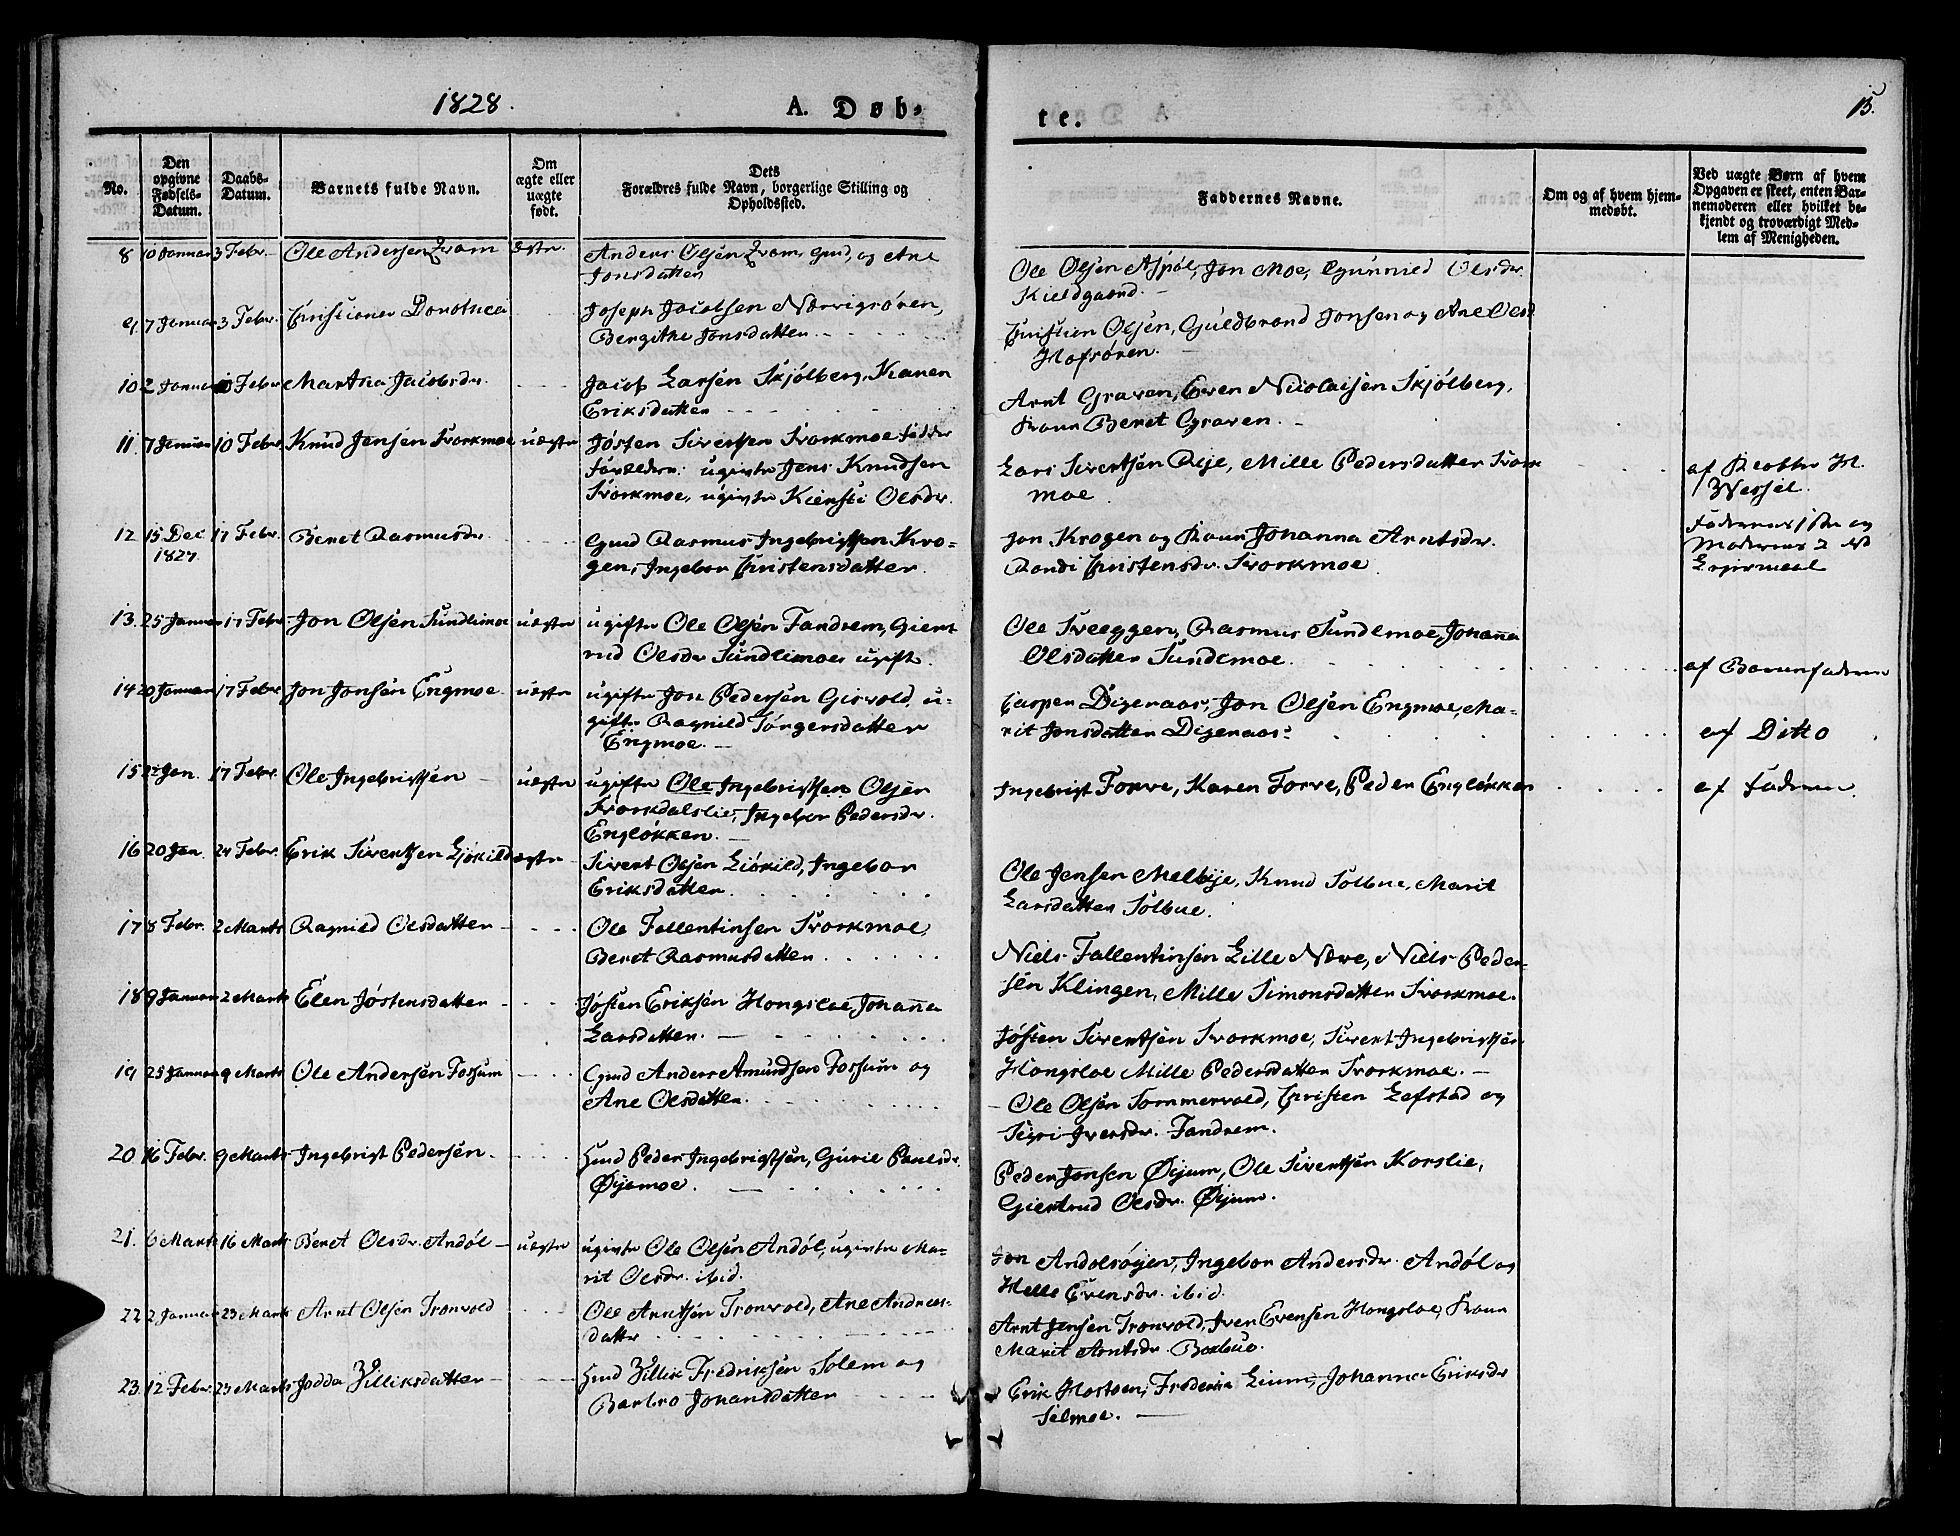 1828.
A. Døb-
te.
15.
No.
Den
opgivne
Fødsels-
Datum.
Daabs-
Datum.
Barnets fulde Navn.
Om
ægte eller
uægte
født.
Dets
Forældres fulde Navn, borgerlige Stilling og
Opholdssted.
Faddernes Navne.
Om og af hvem hjem-
medøbt.
Ved uægte Børn af hvem
Opgaven er skeet, enten Bar-
nemoderen eller hvilket be-
kjendt og troværdigt Med-
lem af Menigheden.
8 10 Januar 3 Febr. Ole Andersen Kram ægte. Anders Olsen Kram, Gmd, og Ane
Jonsdatter
Ole Olsen Aspøl, Jon Moe, Gunnild Olsdr.
Kieldgaard.
9. 7 Januar 3 Febr. Christianer Dorothea Joseph Jacobsen Nervigsøren,
Bergithe Jonsdatter
Christian Olsen, Guldbrand Jonsen og Ane Olsd
Hofsøren.
10 2 Januar 10 Febr Martha Jacobsdr. Jacob Larsen Skjølberg, Karen
Eriksdatter
Arnt Graven, Even Nicolaisen Skjølberg,
Beret Graven.
11. 7 Januar 10 Febr. Knud Jensen Svorkmoe uægte Jøsten Sivertsen Svorkmoe
ugivte Jens Knudsen
Svorkmoe, ugivte Kiersti Olsdr.
Lars Sivertsen Rije, Mille Pedersdatter Svork
moe
af H.
Wessel.
12 15 Dec 17 Febr. Beret Rasmusdr Gmd Rasmus Ingebrigtsen Kro-
1827. gen, Ingebor Christensdatter.
Jon Krogen og Johanna Arntsdr.
Randi Christensdr. Svorkmoe
Faderens 1ste og
Moderens 2 det
Leiermaal
13. 25 Januar 17 Febr. Jon Olsen Sundlimoe uægte ugifte Ole Olsen Fandrem, Giert
rud Olsdr Sundlimoe ugift.
Ole Sveeggen, Rasmus Sundlmoe, Johanna
Olsdatter Sundemoe.
af Barnefaderen
14 20 Januar 17 Febr. Jon Jonsen Engmoe uægte ugifte Jon Pedersen Gisvold, u-
gifte Ragnild Torgersdatter
Engmoe.
Casper Digeraas, Jon Olsen Engmoe, Ma-
rit Jonsdatter Digeraas
af Ditto
15 22 Jan. 17 Febr. Ole Ingebrigtsen uægte ugifte Ole Ingebrigtsen Olsen
Svorkdalslie, Ingebor Pedersdr.
Engløkken.
Ingebrigt Forve, Karen Forve, Peder Engløkken
af Faderen
16 20 Jan. 24 Febr. Erik Sivertsen Liøkild ægte Sivert Olsen Liøkild, Ingebor
Eriksdatter
Ole Jensen Melbye, Knud Solbue, Marit
Larsdatter Solbue.
17 8 Febr. 2 Marts Ragnild Olsdatter Ole Fallentinsen Svorkmoe,
Beret Rasmusdatter
Niels Fallentinsen Lille Neve, Niels Peder-
sen Klingen, Mille Simonsdatter Svorkmoe.
18 9 Januar 2 Marts Elen Jøstensdatter Jøsten Eriksen Hongsloe, Johanna
Larsdatter.
Jøsten Sivertsen Svorkmoe, Sivert Ingebrigtsen
Hongsloe Mille Pedersdatter Svorkmoe.
19 25 Januar 9 Marts Ole Andersen Fossum Gmd Anders Amundsen Fossum og
Ane Olsdatter
Ole Olsen Sommervold, Christen Lefstad og
Sigri Iversdr. Fandrem.
20 16 Febr. 9 Marts Ingebrigt Pedersen. Hmd Peder Ingebrigtsen, Gurie Paulsdr.
Øijamoe.
Peder Jonsen Øijum, Ole Sivertsen Korslie,
Giertrud Olsdr. Øijum.
21. 6 Marts 16 Marts Beret Olsdr. Andøl uægte ugivte Ole Olsen Andøl, ugivte Ma-
rit Olsdr. ibid.
Jon Andolsøijen, Ingebor Andersdr. Andøl og
Helle Evensdr. ibid.
22 2 Januar 23 Marts Arnt Olsen Tronvold Ole Arntsen Tronvold, Ane Andreas-
datter
Arnt Jensen Tronvold, Iver Evensen Hongsloe,
Marit Arntsdr.
23. 12 Febr. 23 Marts Jodda Villiksdatter Hmd Villik Fredriksen Solem og
Barbro Johansdatter
Erik Hostoen, Lium, Johanna Eriksdr
Selmoe.